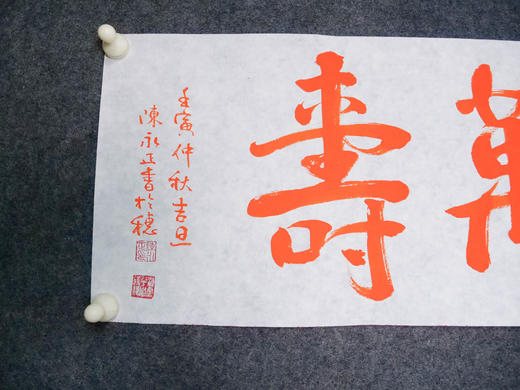 萬
壽
壬寅仲秋吉旦
陳永正書於穗